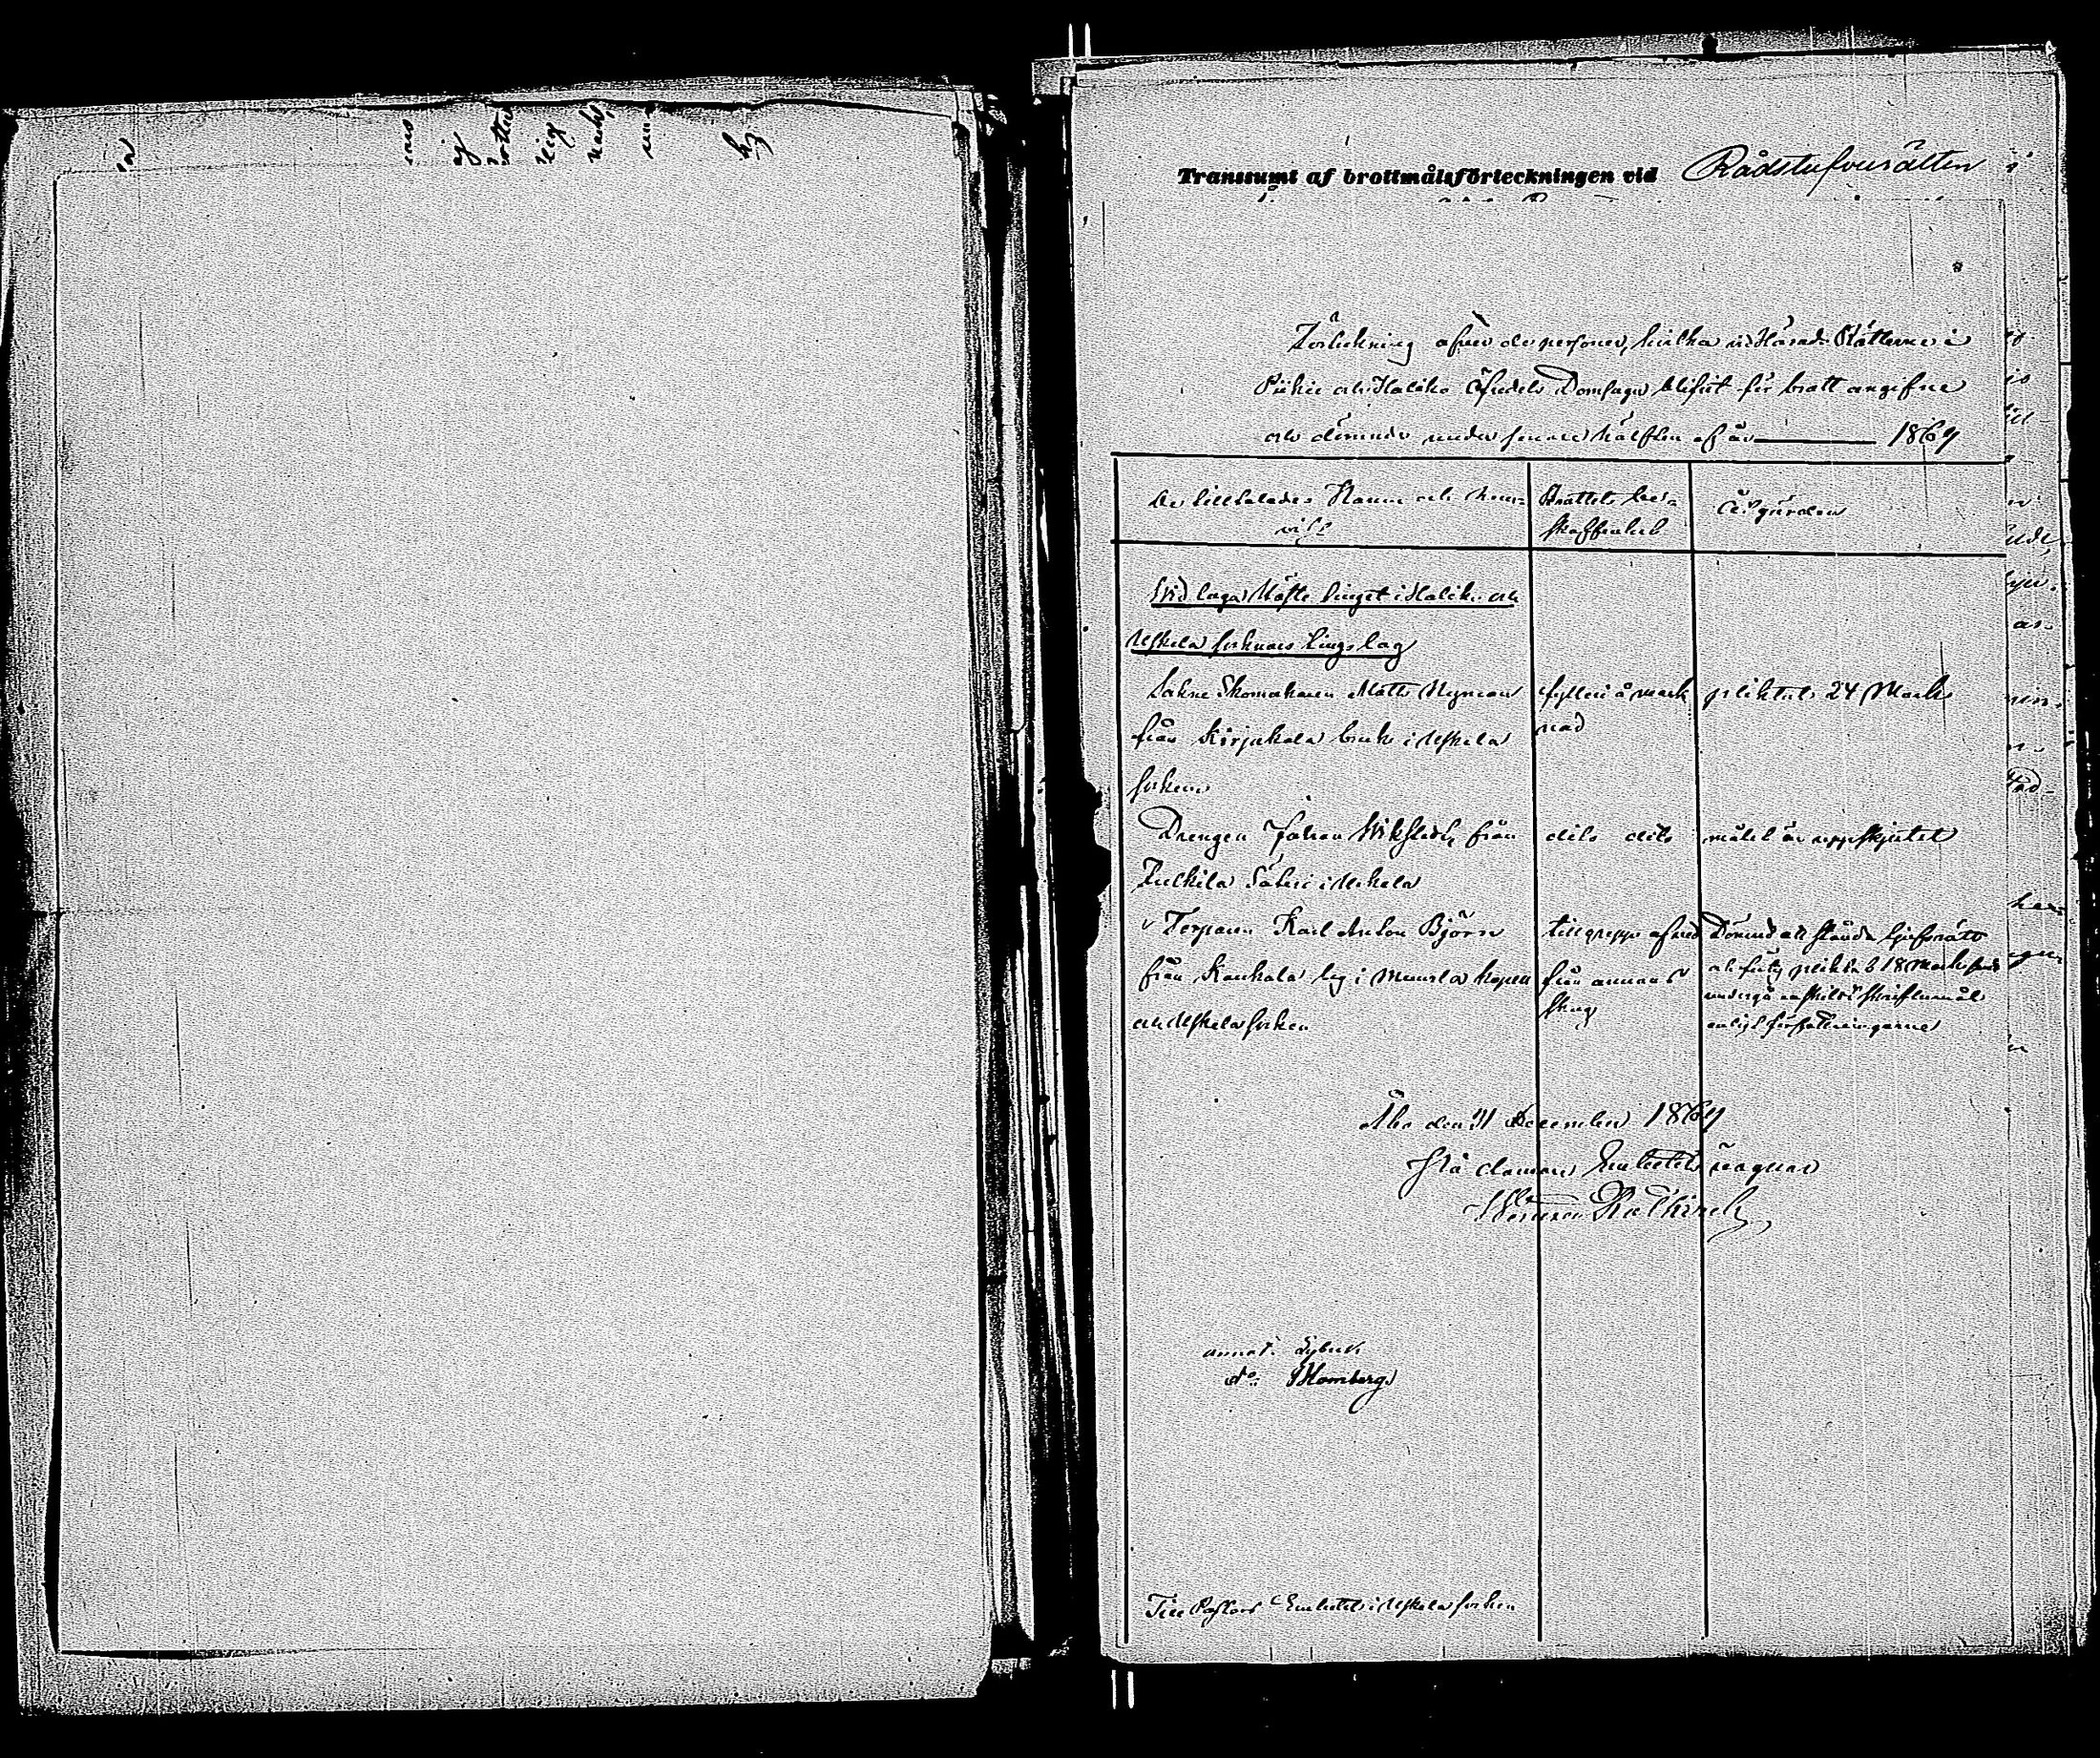 Transsumt af brottmålsförteckningen vid Rådstufvurätten
Förteckning öfver de personer, hvilka vid Härads Rätterne i
Pikie och Haliko Häradets Domsaga blifvit för brott angifne
och dömde under senare hälften af år 1869
De tilltalades Namn och hem-
vist
Brottets be-
skaffenhet
Åtgärden
Vid laga Höste tinget i Haliko och
Uskela socknars tingslag
Sockne Skomakaren Matts Nyman
från Kirjakala bruk i Uskela
socken
fylleri å mark
nad
pliktat 24 Mark
Drengen Johan Wikstedt från
Säteri i Uskela
dito dito
målet är uppskjutet
Torparen Karl Anton Björn
från Kaukola by i Muurla kapell
och Uskela socken
tillgrepp af ved
från annans
skog
Dömd att stånda tjufsrätt
och plikta 18 Mark samt
undergå enskildt skriftermål
enligt författningarne
Åbo den 31 December 1869
På domare Embetets vägnar
annot. Nybruk
do: Blomberg
Till Pastors Embetet i Uskela socken